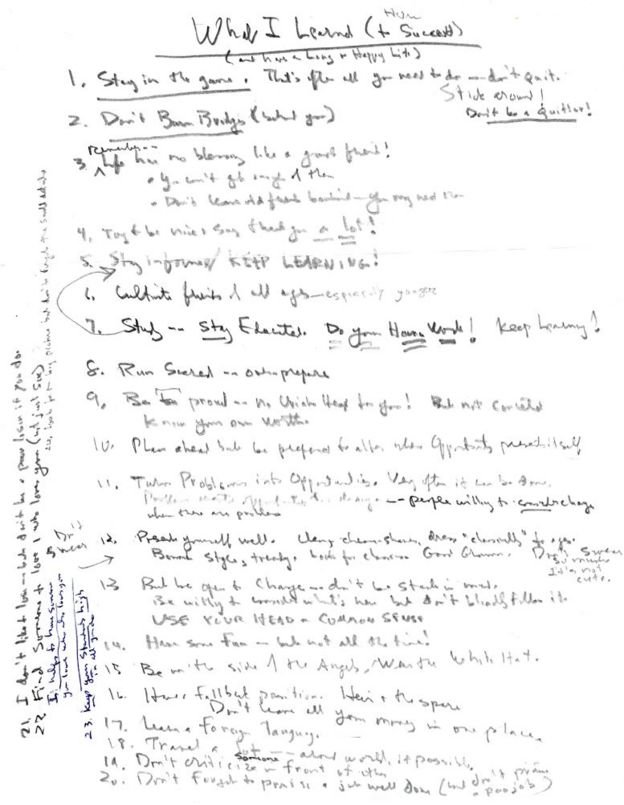 What I Learned (to Succeed)
(and have a Long & Happy Life)
1. Stay in the game. That's often all you need to do — don't quit.
Stick around!
Don't be a Quitter!
2. Don't Burn Bridges (behind you)
3. Remember — Life has no blessing like a good friend!
• You can't get enough of them
• Don't leave old friends behind — you may need them
4. Try to be nice & say thank you a lot!
5. Stay informed/ KEEP LEARNING!
6. Cultivate friends of all ages — especially younger
7. Study -- Stay Educated. Do your Home Work! Keep learning!
8. Run Scared -- over prepare
9. Be proud — no Uriah Heep for you! But not conceited
Know your own worth.
10. Plan ahead but be prepared to alter when Opportunity presents itself
11. Turn Problems into Opportunities. Very often it can be done.
Problems create opportunities for change -- people willing to consider change
when there are problems
12. Present yourself well. Clean, dress "classically" to
styles, trendy. Good Grooming. Don't Swear
so much
It's not
cute.
13 But be open to Change — don't be stuck in
Be willing to consider what's new but don't blindly follow it.
USE YOUR HEAD & COMMON SENSE
14. Have some fun — but not all the time!
15 Be on the side of the Angels. Wear the White Hat.
16. Have a fallback position. Heir & the spare
Don't leave all your money in one place.
17. Learn a foreign language.
18. Travel a lot -- around world, if possible.
19. Don't criticize someone in front of
20. Don't forget to praise a job well done (but don't praise
a poor job)
21. I don't like to lose — but don't be a poor loser if you do.
22. Find Someone to love & who loves you (not just sex)
It helps to have someone
you love who loves you
23. Keep your Standards high
in all you do
look for the big picture but don't forget the small details